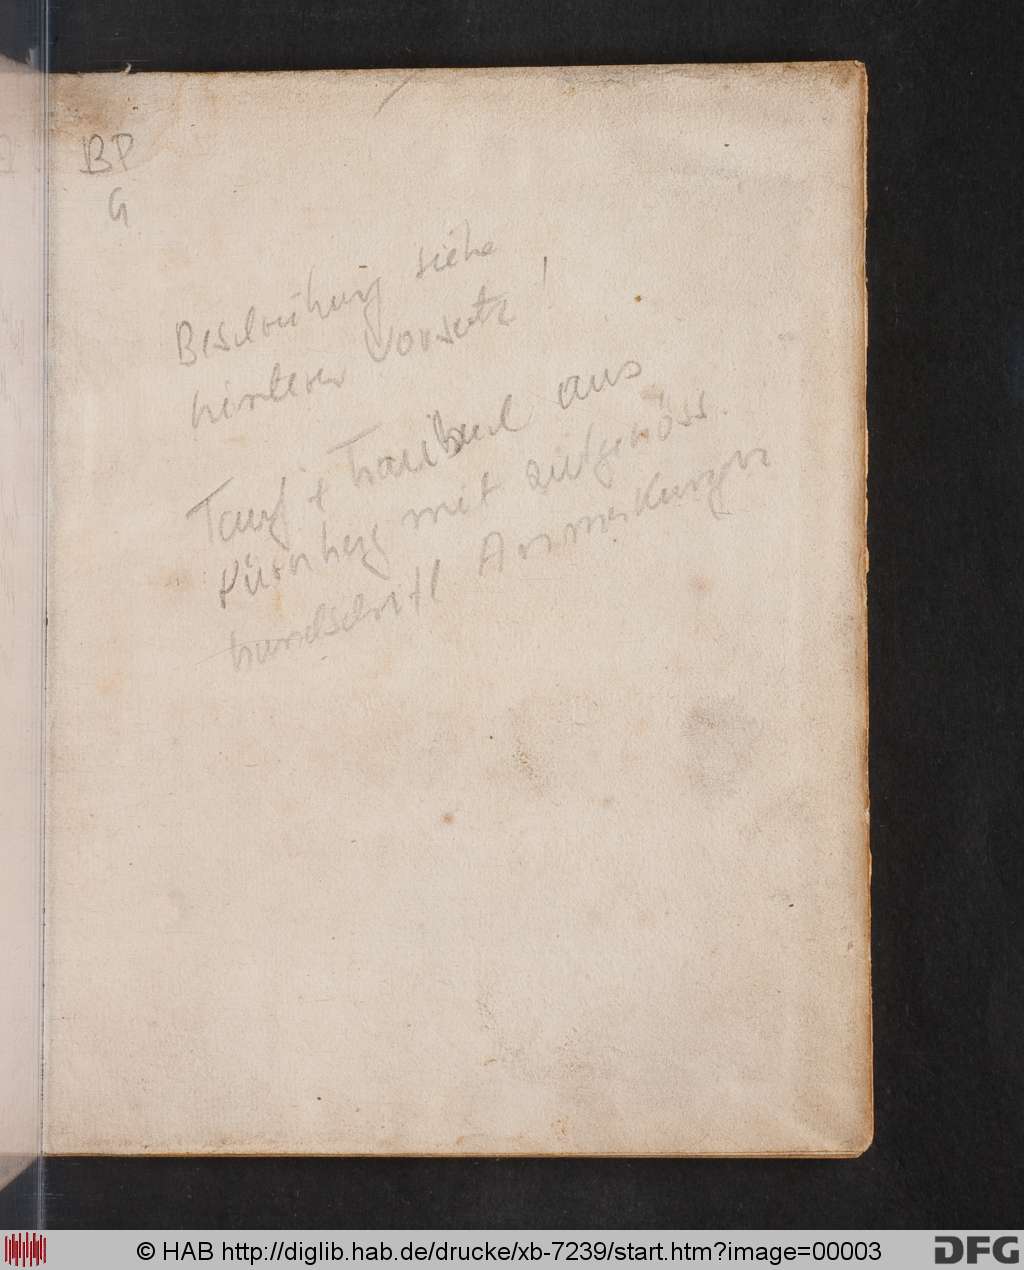 BP
G
Beschreibung siehe
hinteren Vorsatz!
Tauf + Traubuch aus
Nürnberg mit zeitgenöss.
handschriftl Anmerkungen
© HAB http://diglib.hab.de/drucke/xb-7239/start.htm?image=00003
DFG